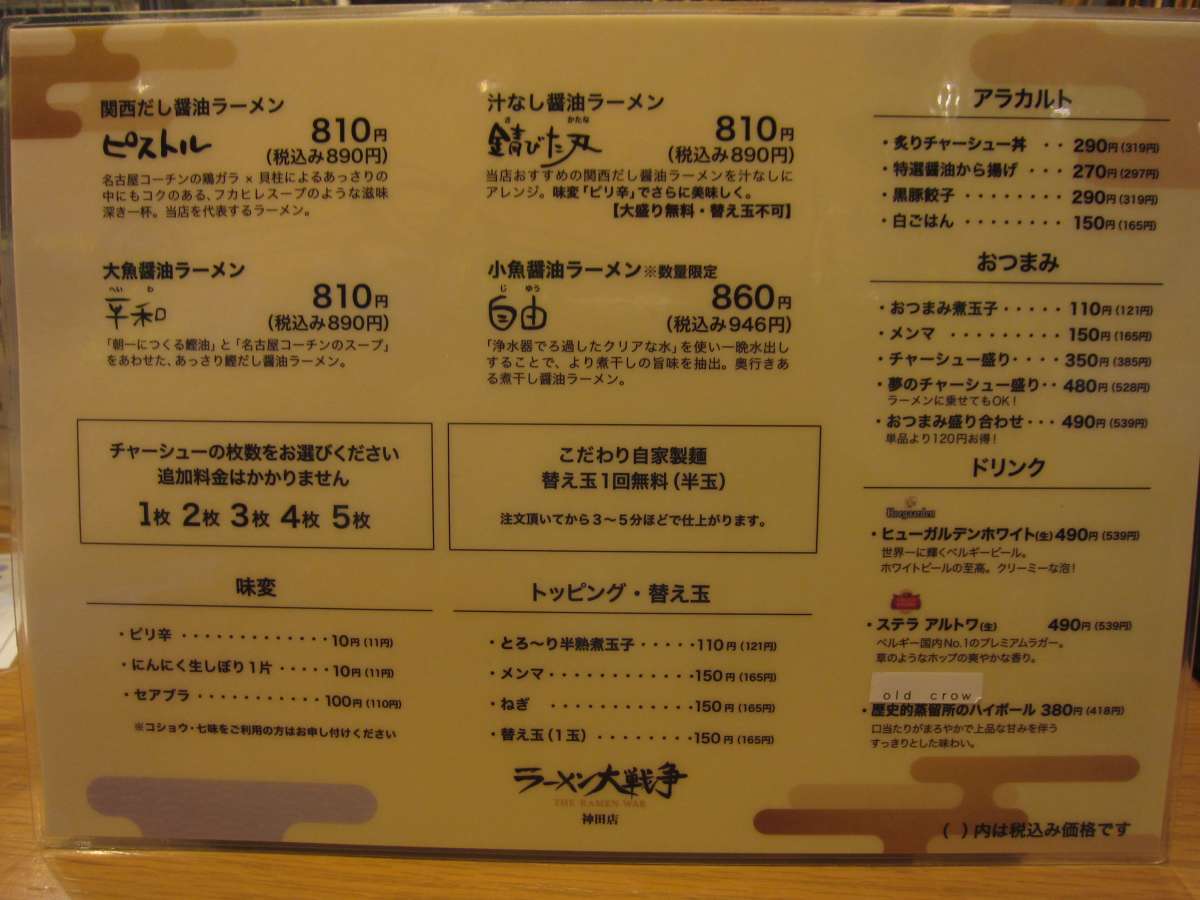 関西だし醤油ラーメン
ピストル
810円
(税込み890円)
名古屋コーチンの鶏ガラ × 貝柱によるあっさりの
中にもコクのある、フカヒレスープのような滋味
深き一杯。当店を代表するラーメン。
汁なし醤油ラーメン
さ かたな
錆びた刃
810円
(税込み890円)
当店おすすめの関西だし醤油ラーメンを汁なしに
アレンジ。味変「ピリ辛」でさらに美味しく。
【大盛り無料・替え玉不可】
大魚醤油ラーメン
へい わ
平和
810円
(税込み890円)
「朝一につくる鰹油」と「名古屋コーチンのスープ」
をあわせた、あっさり鰹だし醤油ラーメン。
小魚醤油ラーメン※数量限定
じ ゆう
自由
860円
(税込み946円)
「浄水器でろ過したクリアな水」を使い一晩水出し
することで、より煮干しの旨味を抽出。奥行きあ
る煮干し醤油ラーメン。
チャーシューの枚数をお選びください
追加料金はかかりません
1枚 2枚 3枚 4枚 5枚
こだわり自家製麺
替え玉1回無料(半玉)
注文頂いてから3〜5分ほどで仕上がります。
味変
・ピリ辛 ・・・・・・・・・・・・・10円(11円)
・にんにく生しぼり1片 ・・・・・10円(11円)
・セアブラ ・・・・・・・・・・・100円(110円)
※コショウ・七味をご利用の方はお申し付けください
トッピング・替え玉
・とろ〜り半熟煮玉子・・・・・110円(121円)
・メンマ・・・・・・・・・・・・・150円(165円)
・ねぎ ・・・・・・・・・・・・・150円(165円)
・替え玉(1玉) ・・・・・・・・150円(165円)
ラーメン大戦争
THE RAMEN WAR
神田店
アラカルト
・炙りチャーシュー丼 ・・ 290円(319円)
・特選醤油から揚げ ・・・ 270円(297円)
・黒豚餃子 ・・・・・・・・ 290円(319円)
・白ごはん ・・・・・・・・ 150円(165円)
おつまみ
・おつまみ煮玉子・・・・・ 110円(121円)
・メンマ ・・・・・・・・・ 150円(165円)
・チャーシュー盛り・・・・ 350円(385円)
・夢のチャーシュー盛り・・ 480円(528円)
ラーメンに乗せてもOK!
・おつまみ盛り合わせ・・・ 490円(539円)
単品より120円お得!
ドリンク
Hoegaarden
・ヒューガルデンホワイト(生)490円(539円)
世界一に輝くベルギービール。
ホワイトビールの至高。クリーミーな泡!
・ステラ アルトワ(生) 490円(539円)
ベルギー国内No.1のプレミアムラガー。
草のようなホップの爽やかな香り。
old crow
・歴史的蒸留所のハイボール 380円(418円)
口当たりがまろやかで上品な甘みを伴う
すっきりとした味わい。
( )内は税込み価格です